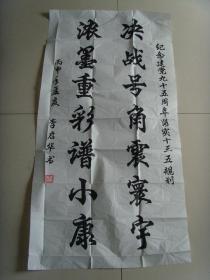 纪念建党九十五周年落实十三五规划
决战号角震寰宇
浓墨重彩谱小康
丙申年孟夏
李启华书